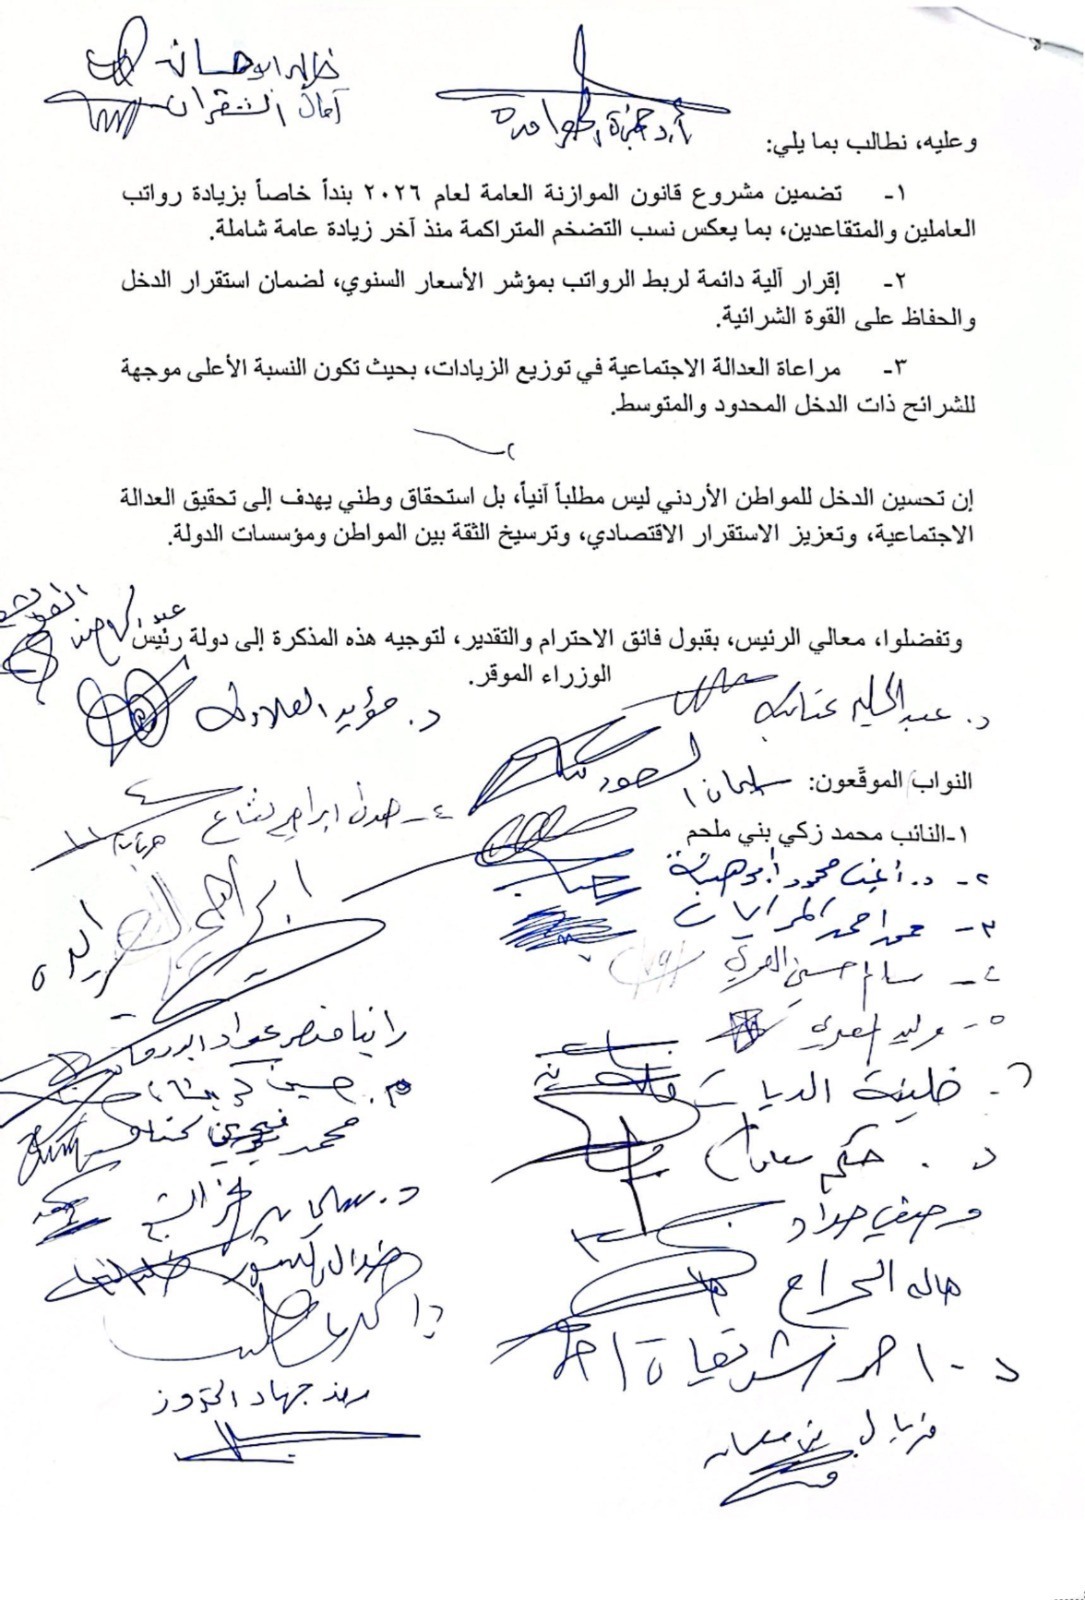 خالد ابو حسان
آمال الشقران
أ.د حمزة الحوامدة
وعليه، نطالب بما يلي:
١- تضمين مشروع قانون الموازنة العامة لعام ٢٠٢٦ بنداً خاصاً بزيادة رواتب
العاملين والمتقاعدين، بما يعكس نسب التضخم المتراكمة منذ آخر زيادة عامة شاملة.
٢- إقرار آلية دائمة لربط الرواتب بمؤشر الأسعار السنوي، لضمان استقرار الدخل
والحفاظ على القوة الشرائية.
٣- مراعاة العدالة الاجتماعية في توزيع الزيادات، بحيث تكون النسبة الأعلى موجهة
للشرائح ذات الدخل المحدود والمتوسط.
إن تحسين الدخل للمواطن الأردني ليس مطلباً آنياً، بل استحقاق وطني يهدف إلى تحقيق العدالة
الاجتماعية، وتعزيز الاستقرار الاقتصادي، وترسيخ الثقة بين المواطن ومؤسسات الدولة.
وتفضلوا، معالي الرئيس، بقبول فائق الاحترام والتقدير، لتوجيه هذه المذكرة إلى دولة رئيس
الوزراء الموقر.
د. عبدالحليم عنانبه
د. مؤيد العلاونة
النواب الموقّعون:
سليمان السعود
١-النائب محمد زكي بني ملحم
٢- د. أيمن محمود أبوهنية
٣- محمد احمد المراعيات
٤- سالم حسني العمري
٥- وليد المصري
٦- خليفة الديات
د. حكم معادات
وصفي حداد
هاله الجراح
د. احمد الشرقيات
فريال بني سلمان
٤- هدى ابراهيم نفاع
ابراهيم الصرايره
رانيا منصر عواد ابو رمان
م. حسين كريشان
محمد
د. سليمان الخرابشه
نضال
رند جهاد الخزوز